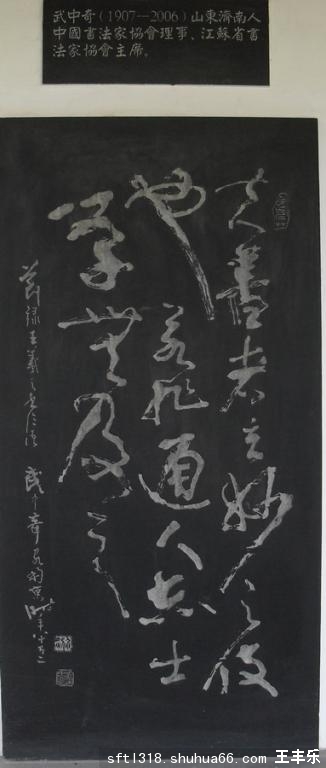 武中奇(1907—2006)山東濟南人
中國書法家協會理事、江蘇省書
法家協會主席。
夫書者玄妙之伎
也若非通人志士
學無及之
節錄王羲之書論語 武中奇書
sftl318.shuhua66.com 王丰乐